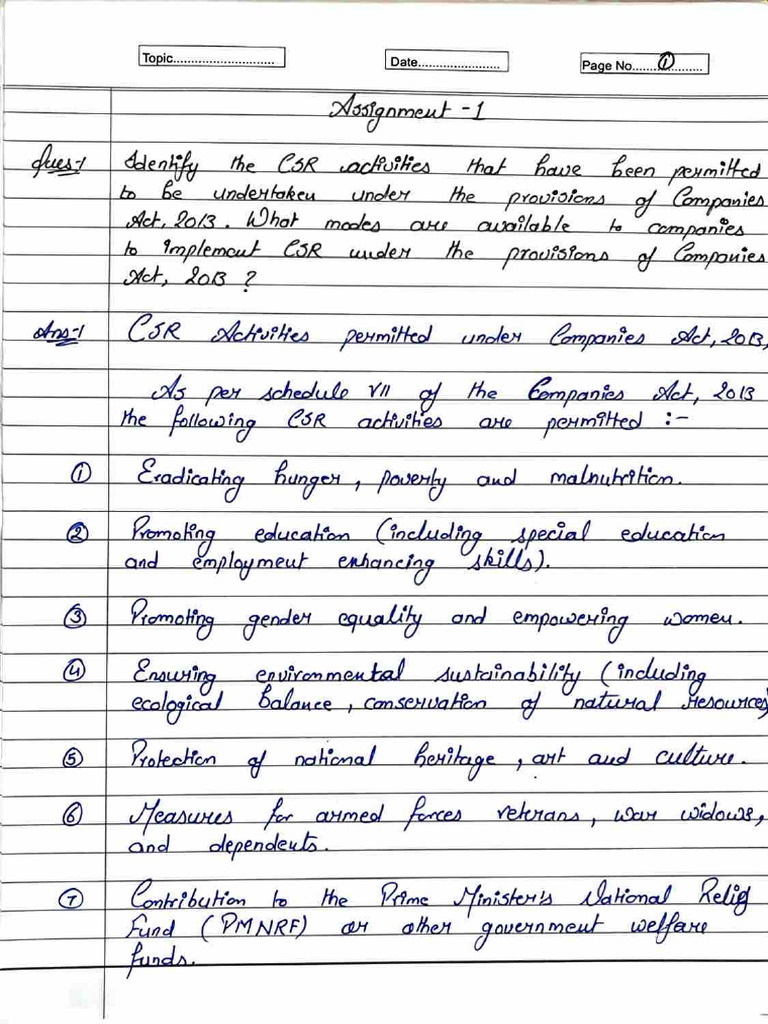 Topic............................
Date.......................
Page No.......①..........
Assignment -1
Ques-1 Identify the CSR activities that have been permitted
to be undertaken under the provisions of Companies
Act, 2013. What modes are available to companies
to implement CSR under the provisions of Companies
Act, 2013 ?
Ans-1 CSR Activities permitted under Companies Act, 2013,
As per schedule VII of the Companies Act, 2013
the following CSR activities are permitted :-
① Eradicating hunger, poverty and malnutrition.
② Promoting education (including special education
and employment enhancing skills).
③ Promoting gender equality and empowering women.
④ Ensuring environmental sustainability (including
ecological balance, conservation of natural resources)
⑤ Protection of national heritage, art and culture.
⑥ Measures for armed forces veterans, war widows,
and dependents.
⑦ Contribution to the Prime Minister's National Relief
Fund (PMNRF) or other government welfare
funds.